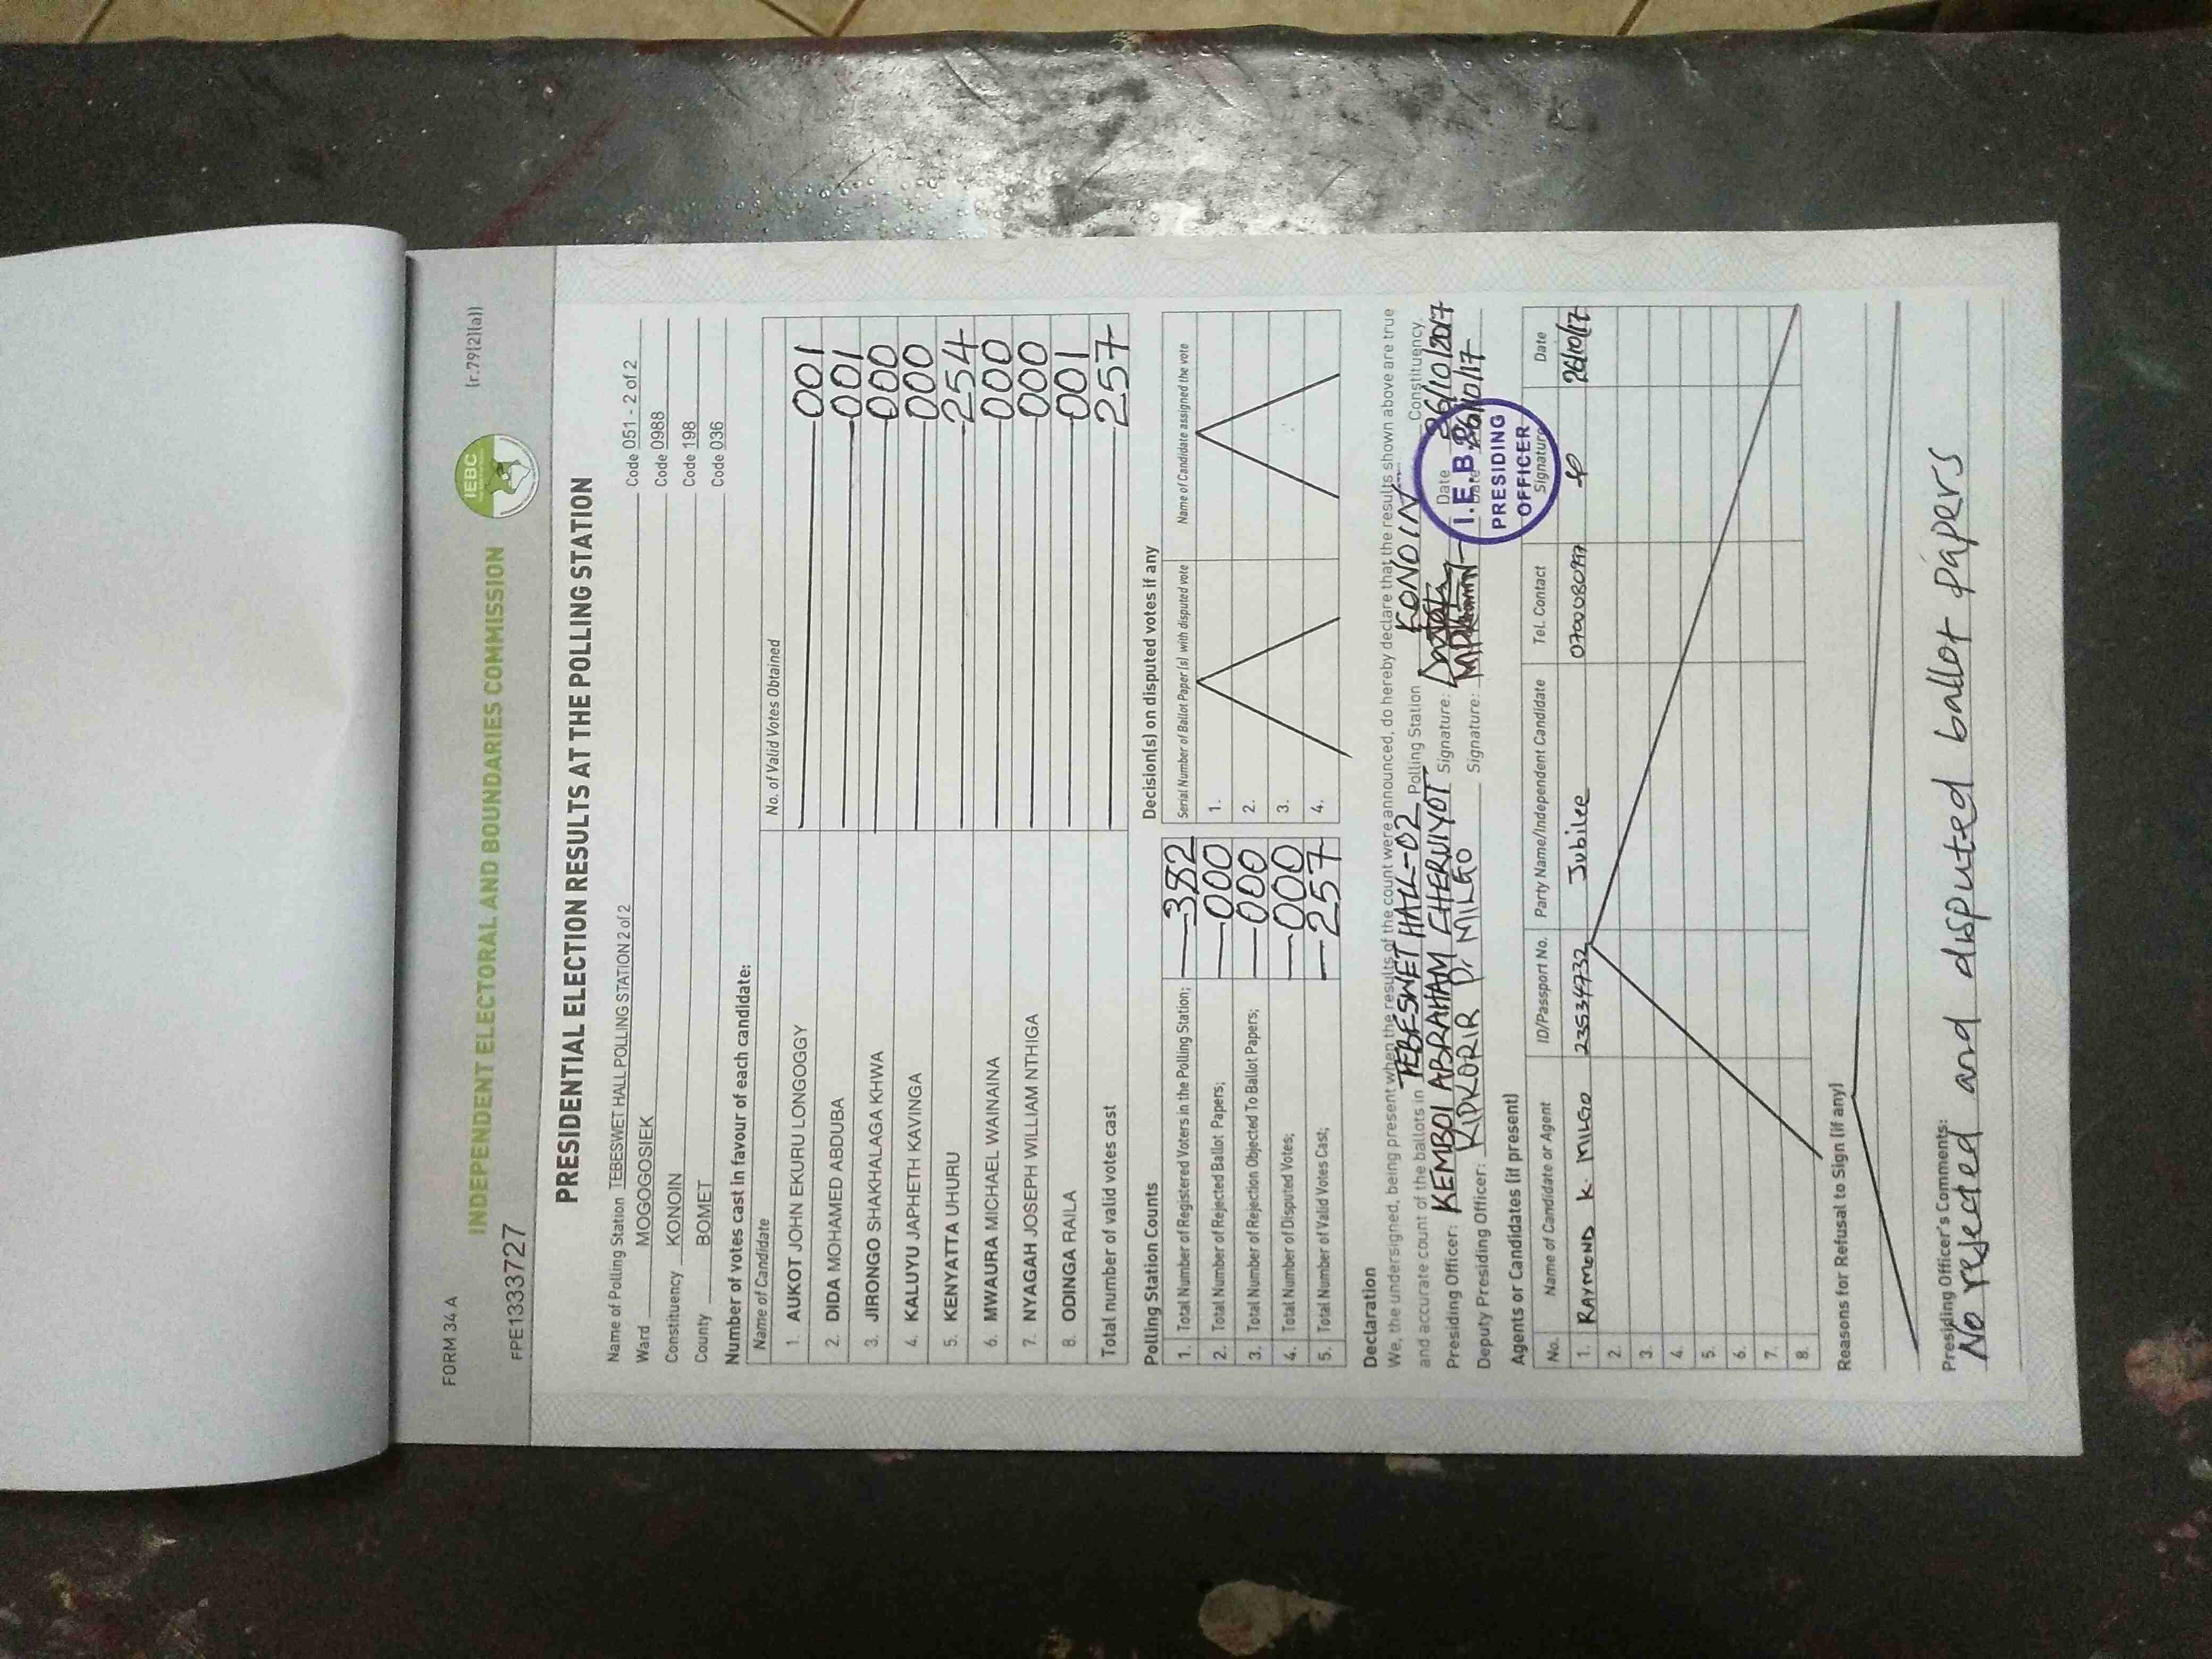 FORM 34 A
INDEPENDENT ELECTORAL AND BOUNDARIES COMMISSION
IEBC
(r.79(2)(a))
FPE1333727
PRESIDENTIAL ELECTION RESULTS AT THE POLLING STATION
Name of Polling Station TEBESWET HALL POLLING STATION 2 of 2 Code 051 - 2 of 2
Ward MOGOGOSIEK Code 0988
Constituency KONOIN Code 198
County BOMET Code 036
Number of votes cast in favour of each candidate:
Name of Candidate No. of Valid Votes Obtained
1. AUKOT JOHN EKURU LONGOGGY 001
2. DIDA MOHAMED ABDUBA 001
3. JIRONGO SHAKHALAGA KHWA 000
4. KALUYU JAPHETH KAVINGA 000
5. KENYATTA UHURU 254
6. MWAURA MICHAEL WAINAINA 000
7. NYAGAH JOSEPH WILLIAM NTHIGA 000
8. ODINGA RAILA 001
Total number of valid votes cast 257
Polling Station Counts
1. Total Number of Registered Voters in the Polling Station; 382
2. Total Number of Rejected Ballot Papers; 000
3. Total Number of Rejection Objected To Ballot Papers; 000
4. Total Number of Disputed Votes; 000
5. Total Number of Valid Votes Cast; 257
Decision(s) on disputed votes if any
Serial Number of Ballot Paper (s) with disputed vote Name of Candidate assigned the vote
1.
2.
3.
4.
Declaration
We, the undersigned, being present when the results of the count were announced, do hereby declare that the results shown above are true
and accurate count of the ballots in TEBESWET HALL-02 Polling Station KONOIN Constituency
Presiding Officer: KEMBOI ABRAHAM CHERUIYOT Signature: Date 26/10/2017
Deputy Presiding Officer: KIPKORIR D. MILGO Signature: Date 26/10/17
I.E.B.C
PRESIDING
OFFICER
Agents or Candidates (if present)
No. Name of Candidate or Agent ID/Passport No. Party Name/Independent Candidate Tel. Contact Signature Date
1. RAYMOND K. MILGO 23534732 Jubilee 26/10/17
2.
3.
4.
5.
6.
7.
8.
Reasons for Refusal to Sign (if any)
Presiding Officer's Comments:
No rejected and disputed ballot papers